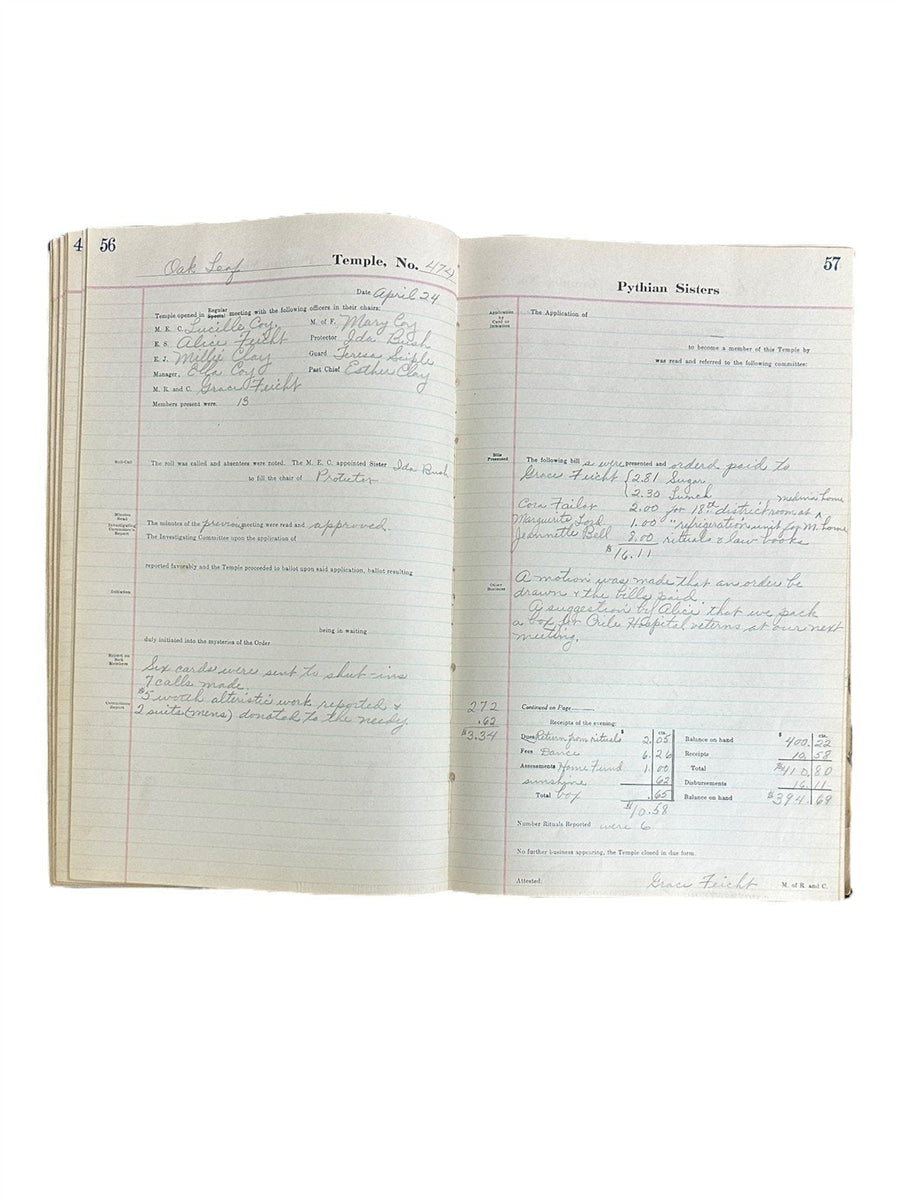 4
56
Oak Leaf Temple, No. 474
Date April 24
Temple opened in Regular Special meeting with the following officers in their chairs:
M. E. C. Lucille Coy. M. of F. Mary Coy
E. S. Alice Feicht Protector Ida Bush
E. J. Millie Clay Guard Teresa Seiple
Manager, Ella Coy Past Chief Esther Clay
M. R. and C. Grace Feicht
Members present were. 13
Roll-Call
The roll was called and absentees were noted. The M. E. C. appointed Sister Ida Bush
to fill the chair of Protector
Minutes Read
The minutes of the previous meeting were read and approved.
Investigating Committee's Report
The Investigating Committee upon the application of
reported favorably and the Temple proceeded to ballot upon said application, ballot resulting
Initiation
being in waiting
duly initiated into the mysteries of the Order
Report on Sick Members
Six cards were sent to shut-ins
7 calls made.
$5 worth alteristic work reported &
Committees Report
2 suits (mens) donated to the needy
272
.62
$3.34
57
Pythian Sisters
Application by Card or Initiation
The Application of
to become a member of this Temple by
was read and referred to the following committee:
Bills Presented
The following bill s were presented and orderd paid to
Grace Feicht { 2.81 Sugar
{ 2.30 Lunch
Cora Failor 2.00 for 18th district room at ^ medina home
Marguerite Lord 1.00 " refrigeration unit for M. home
Jeannette Bell 8.00 rituals & law books
$16.11
Other Business
A motion was made that an order be
drawn & the bills paid
A suggestion by Alice that we pack
a box for Crile Hospital veterns at our next
meeting.
Continued on Page
Receipts of the evening:
Dues Return from rituals $ 2. cts. 05
Fees Dance 6.26
Assessments Home Fund 1.00
sunshine 62
Total box .65
$10.58
Balance on hand $ 400. cts. 22
Receipts 10.58
Total $410.80
Disbursements 16.11
Balance on hand $394.69
Number Rituals Reported were 6
No further business appearing, the Temple closed in due form.
Attested: Grace Feicht M. of R. and C.